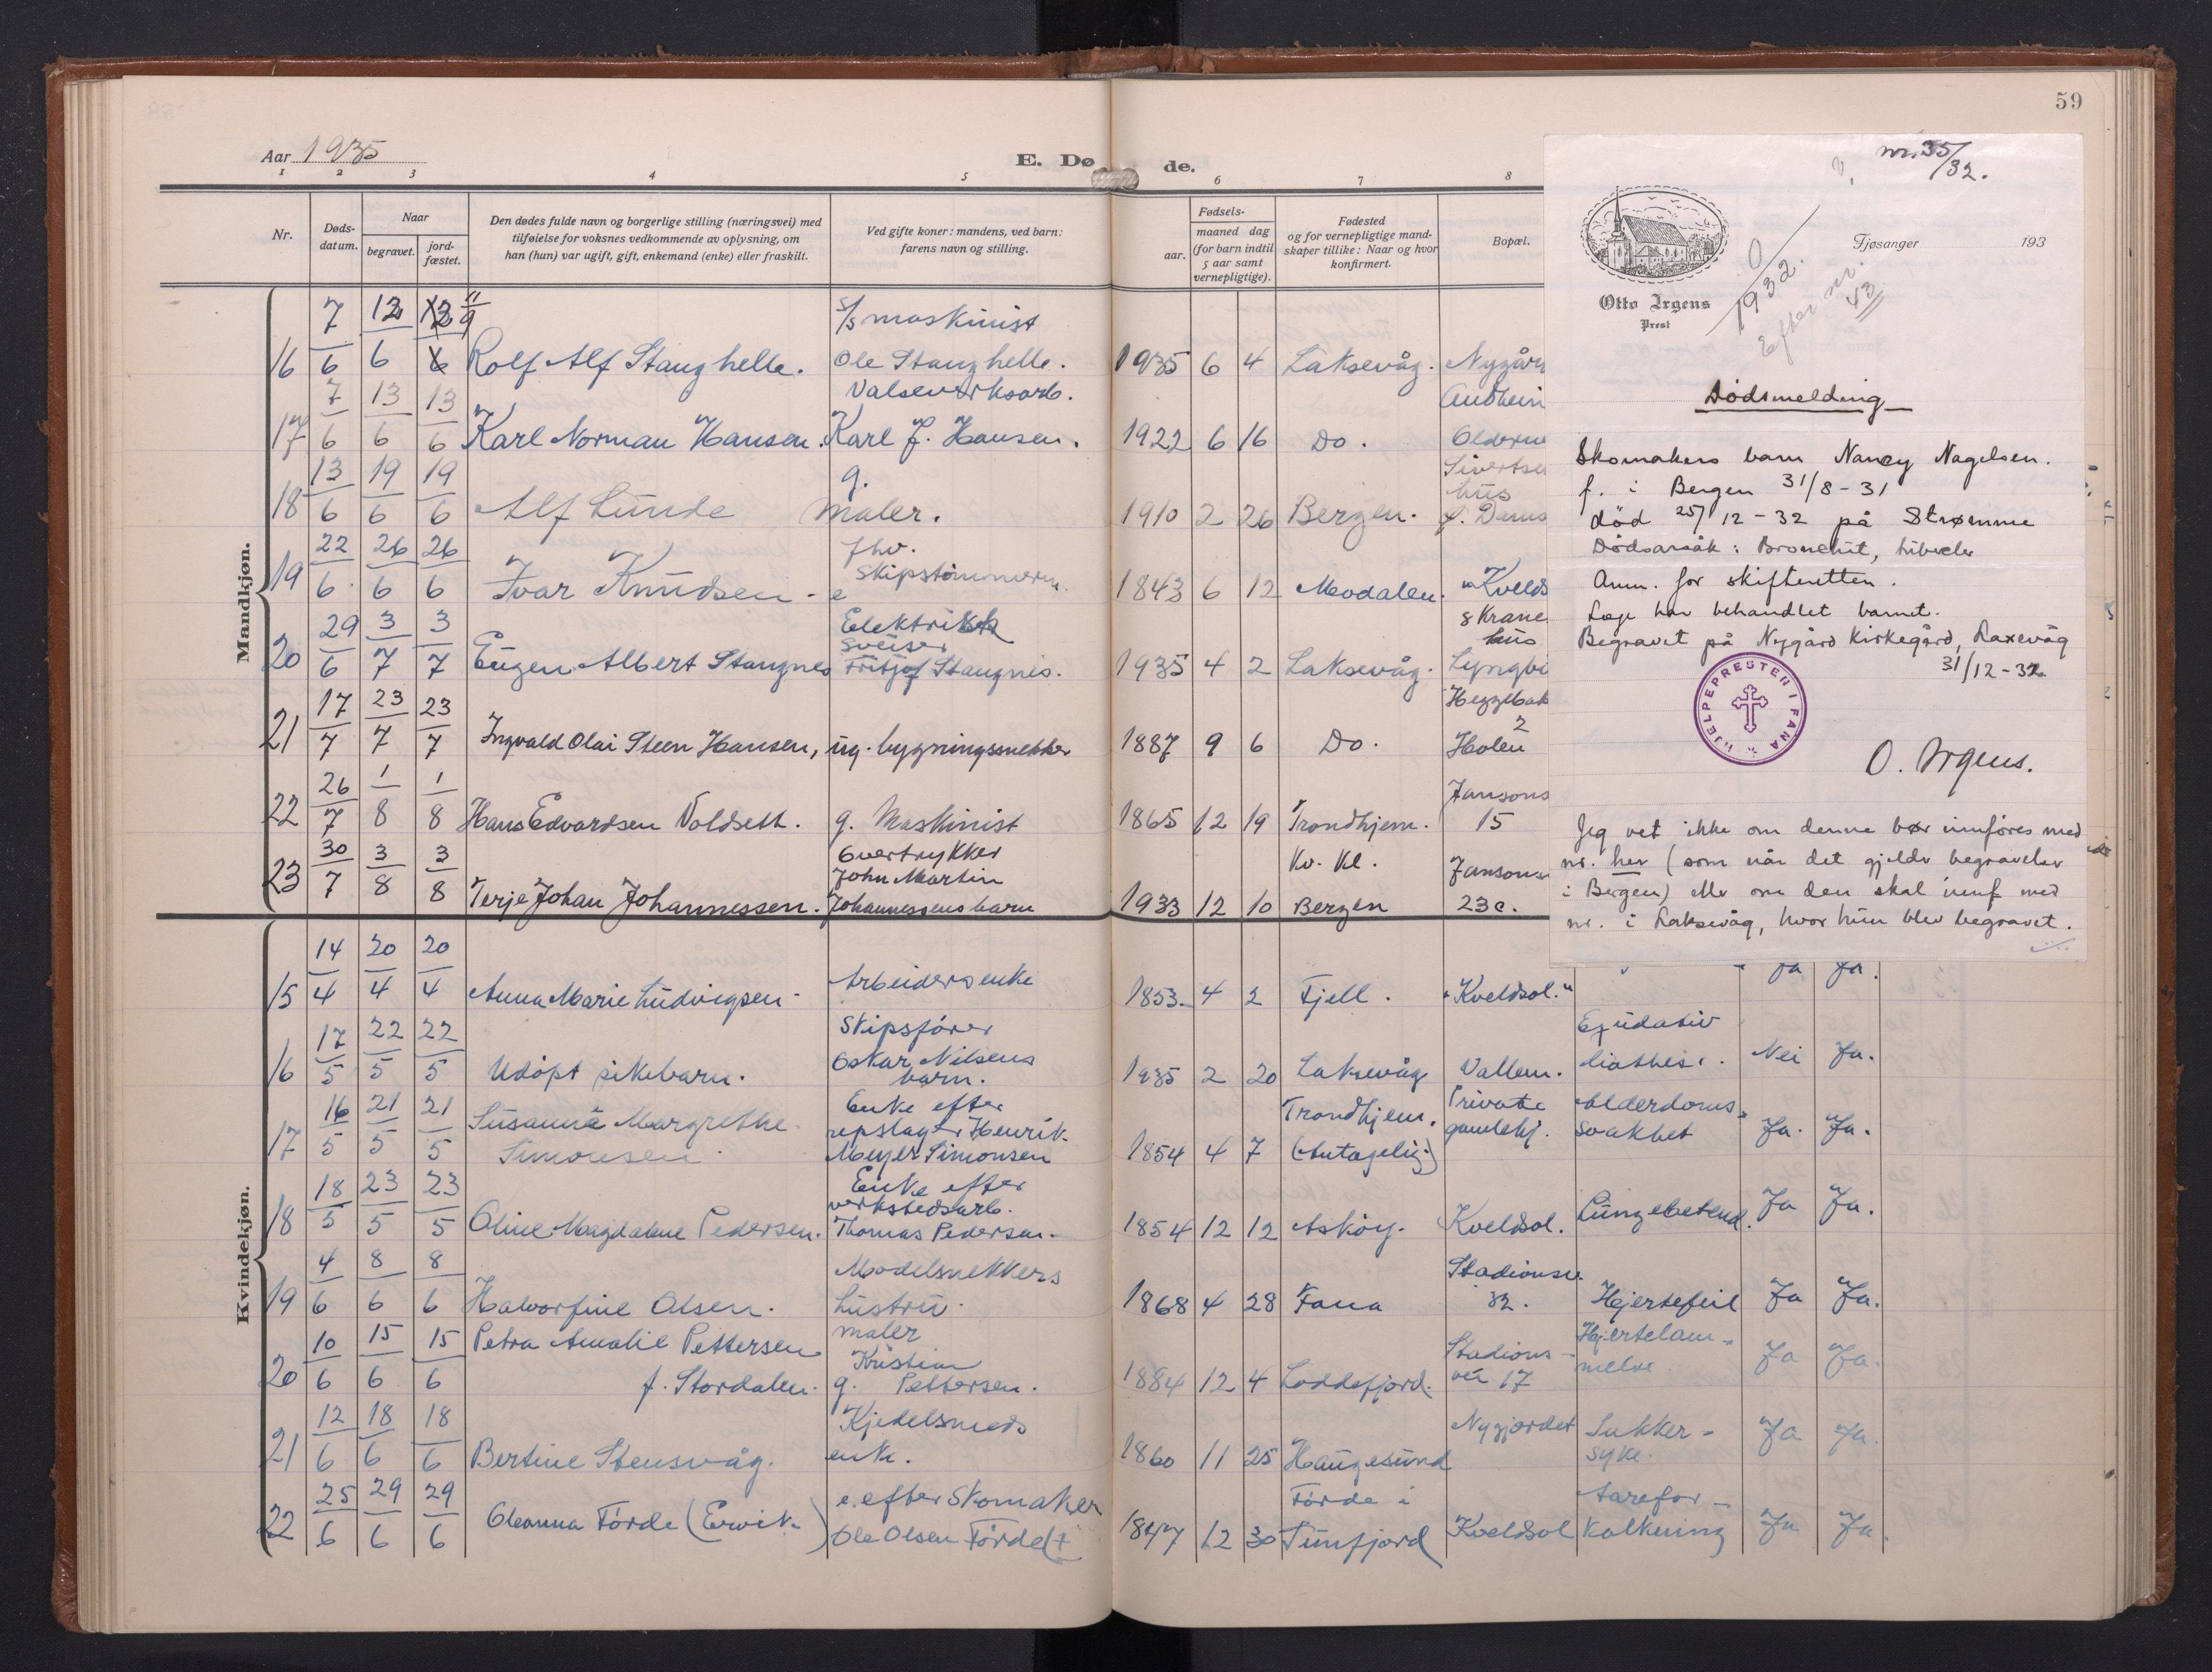 59
Aar 1935
E. Dø de.
1 2 3 4 5 6 7 8
Nr.
Døds-
datum.
Naar
begravet.
jord-
fæstet.
Den dødes fulde navn og borgerlige stilling (næringsvei) med
tilføielse for voksnes vedkommende av oplysning, om
han (hun) var ugift, gift, enkemand (enke) eller fraskilt.
Ved gifte koner: mandens, ved barn:
farens navn og stilling.
Fødsels-
aar.
maaned dag
(for barn indtil
5 aar samt
vernepligtige).
Fødested
og for vernepligtige mand-
skaper tillike: Naar og hvor
konfirmert.
Bopæl.
Mandkjøn.
7 12 12 11/9 s/s maskinist
16 6 6 6 Rolf Alf Stanghelle. Ole Stanghelle. 1935 6 4 Laksevåg. Nygårds
7 13 13 Valseverksarb.
17 6 6 6 Karl Norman Hansen. Karl J. Hansen. 1922 6 16 Do.
13 19 19 g. Sivertsen
hus
18 6 6 6 Alf Lunde Maler. 1910 2 26 Bergen.
22 26 26 fhv.
Skipstømmerm.
19 6 6 6 Ivar Knudsen - e 1843 6 12 Modalen. "Kvelds
29 3 3 Elektrisk
hus
Sveiser
20 6 7 7 Eugen Albert Stangnes Fritjof Stangnes. 1935 4 2 Laksevåg. Lyngbø
17 23 23
2
21 7 7 7 Ingvald Olai Steen Hansen, ug. bygningssnekker 1887 9 6 Do. Holen
26 1 1 Jansons
22 7 8 8 Hans Edvardsen Voldseth. g. Maskinist 1865 12 19 Trondhjem. 15
30 3 3 Overtrykker Kv. Kl. Jansons
John Martin
23 7 8 8 Terje Johan Johannessen. Johannessens barn 1933 12 10 Bergen 23c.
Kvindekjøn.
14 20 20 Arbeidersenke
15 4 4 4 Anna Marie Ludvigsen - 1853. 4 2 Fjell. "Kveldsol." Ja Ja.
17 22 22 Skipsfører Exudativ
Oskar Nilsens
16 5 5 5 Udøpt pikebarn. barn. 1935 2 20 Laksevåg Vallem. diathese. Nei Ja.
16 21 21 Susanna Margrethe Enke efter Trondhjem. Private Alderdoms-
repslager Henrik
17 5 5 5 Simonsen Meyer Simonsen 1854 4 7 (Antagelig) gamlehj. svakhet Ja. Ja.
18 23 23 Enke efter
verkstedsarb.
18 5 5 5 Oline Magdalene Pedersen. Thomas Pedersen. 1854 12 12 Askøy. Kveldsol. Lungebetend. Ja Ja.
4 8 8 Modelsnekkers Stadionsv.
19 6 6 6 Halvorfine Olsen. hustru. 1868 4 28 Fana 32. Hjertefeil Ja Ja.
10 15 15 Petra Amalie Pettersen maler Stadions- Hjertelam-
Kristian
20 6 6 6 f. Stordalen. g. Pettersen. 1884 12 4 Loddefjord. vei 17 melse. Ja Ja.
12 18 18 Kjedelsmeds Nygjordet Sukker-
21 6 6 6 Bertine Stensvåg. enke. 1860 11 25 Haugesund syke. Ja Ja.
25 29 29 e. efter Skomaker Førde i Aarefor-
22 6 6 6 Oleanna Førde (Ervik) Ole Olsen Førde (+ 1847 12 30 Sunfjord Kveldsol kalkning Ja Ja.
nr. 35/32.
Otto Irgens
Prest
Fjøsanger 193
0/1932.
Efter nr.
43
Dødsmelding
Skomakers barn Nancy Nagelsen.
f. i Bergen 31/8-31
død 25/12-32 på Strømme
Dødsårsåk: Bronchit, tubercler
Anm. for skifteretten.
Læge har behandlet barnet.
Begravet på Nygård Kirkegård, Laxevåg
31/12-32
HJELPEPRESTEN I FANA
O. Irgens.
Jeg vet ikke om denne bør innføres med
nr. her (som når det gjelder begravelser
i Bergen) eller om den skal innf med
nr. i Laksevåg, hvor hun blev begravet.